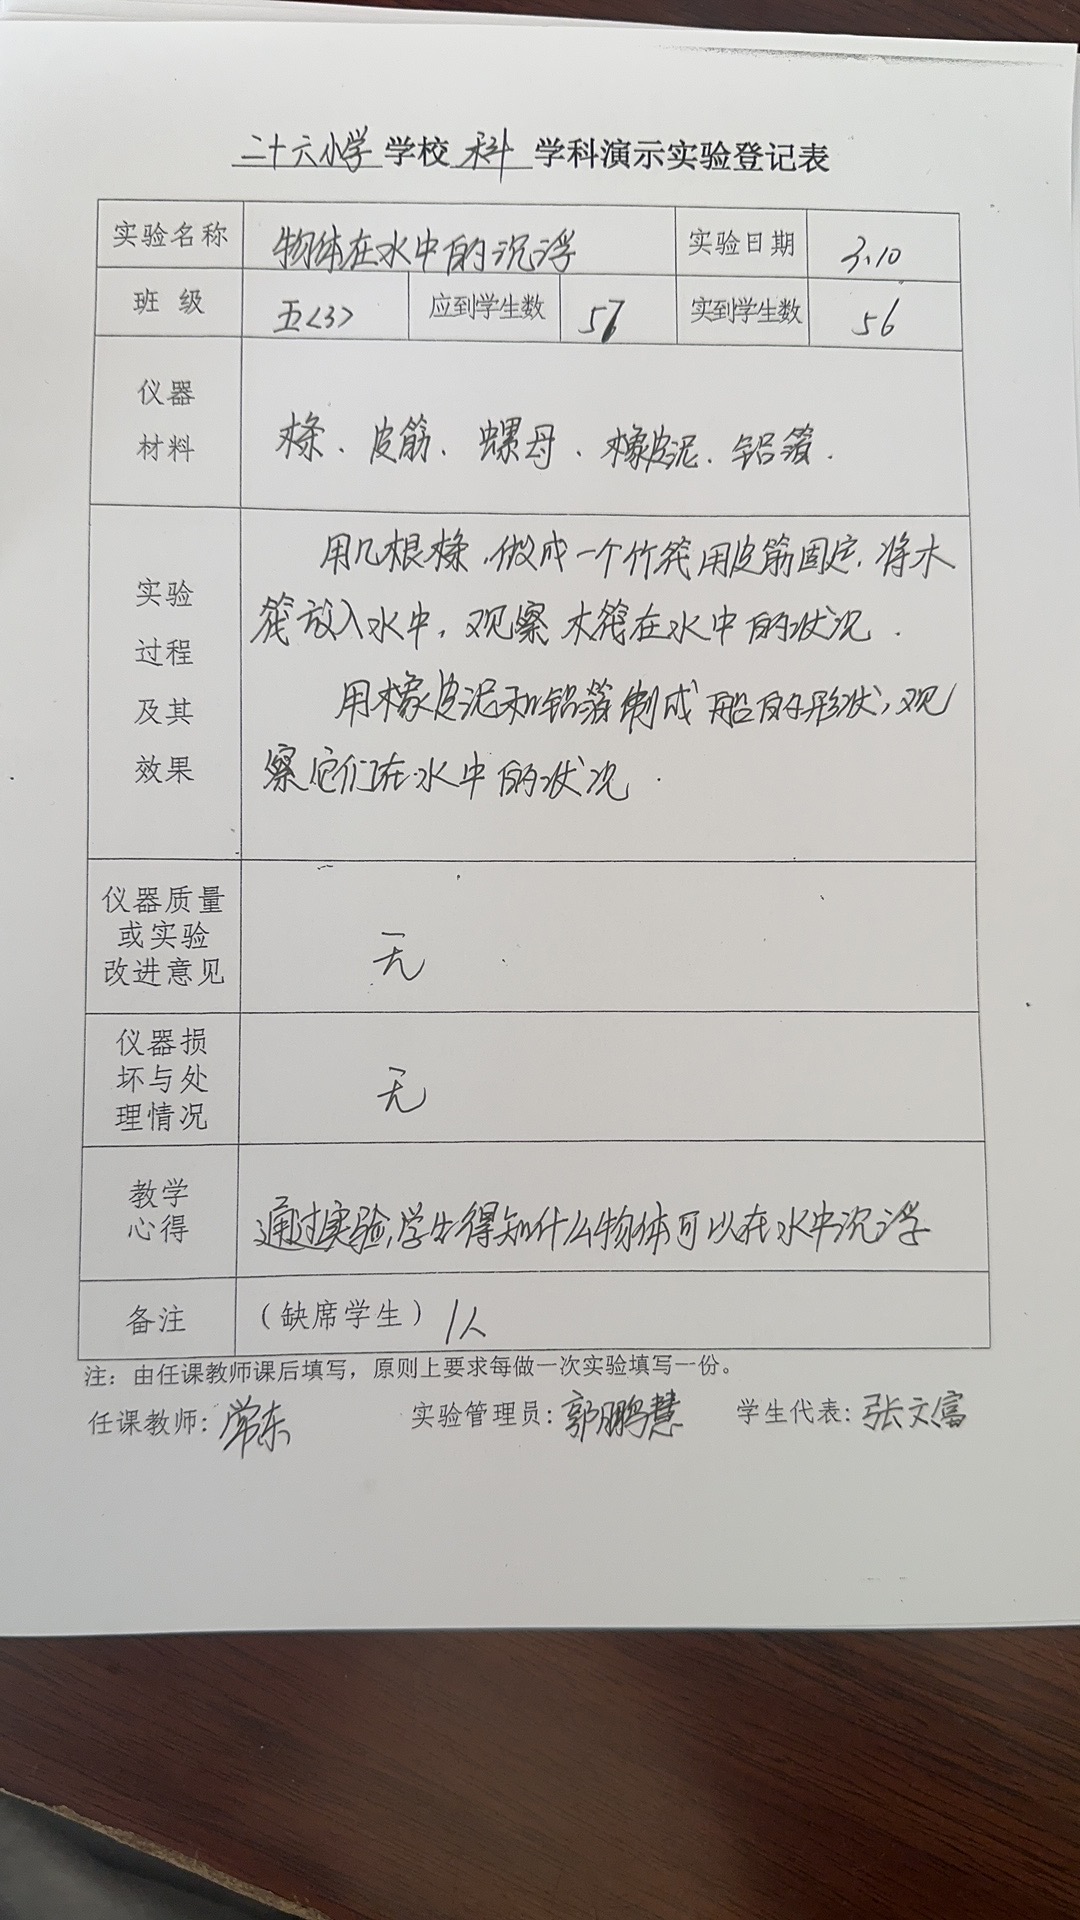 二十六小学 学校 科 学科演示实验登记表
实验名称 物体在水中的沉浮 实验日期 3.10
班 级 五<3> 应到学生数 57 实到学生数 56
仪器
材料
木条、皮筋、螺母、橡皮泥、铝箔.
实验
过程
及其
效果
用几根木条,做成一个竹筏用皮筋固定,将木
筏放入水中,观察木筏在水中的状况.
用橡皮泥和铝箔制成船的形状,观
察它们在水中的状况.
仪器质量
或实验
改进意见
无
仪器损
坏与处
理情况
无
教学
心得
通过实验,学生得知什么物体可以在水中沉浮
备注 (缺席学生) 1人
注:由任课教师课后填写,原则上要求每做一次实验填写一份。
任课教师:常东 实验管理员:郭鹏慧 学生代表:张文富